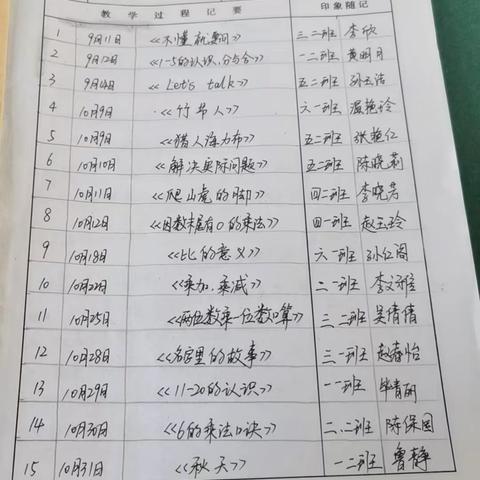 教学过程记要 印象随记
1 9月11日 《不懂就要问》 三.二班 李欣
2 9月12日 《1-5的认识,分与合》 一二班 黄明月
3 9月14日 《Let's talk》 五二班 孙玉洁
4 10月9日 《竹节人》 六一班 温艳玲
5 10月9日 《猎人海力布》 五二班 张艳红
6 10月10日 《解决实际问题》 五二班 陈晓莉
7 10月11日 《爬山虎的脚》 四二班 李晓芳
8 10月12日 《因数末尾有0的乘法》 四一班 赵玉玲
9 10月18日 《比的意义》 六一班 孙红周
10 10月22日 《乘加,乘减》 二一班 李文
11 10月25日 《两位数乘一位数口算》 三.二班 吴倩倩
12 10月28日 《名字里的故事》 三一班 赵春怡
13 10月29日 《11-20的认识》 一一班 毕青丽
14 10月30日 《6的乘法口诀》 二.二班 陈保国
15 10月31日 《秋天》 一二班 鲁静